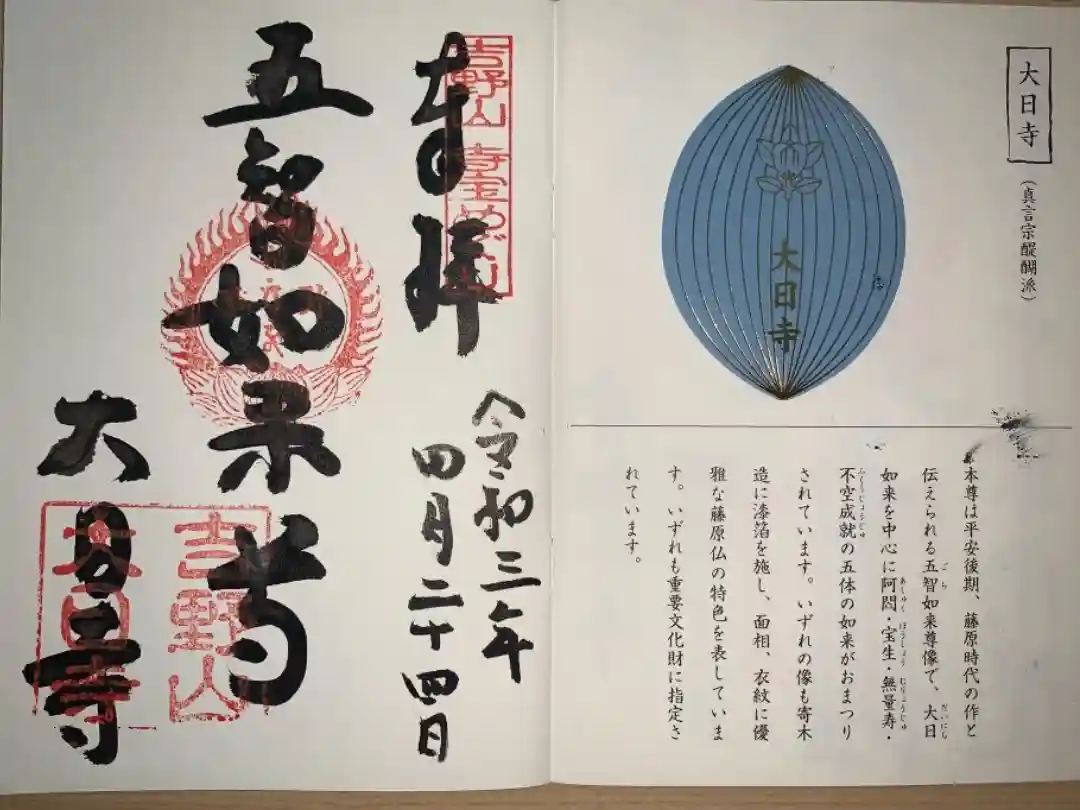 大日寺
(真言宗醍醐派)
大日寺
本尊は平安後期、藤原時代の作と
伝えられる五智如来尊像で、大日
如来を中心に阿閦・宝生・無量寿・
不空成就の五体の如来がおまつり
されています。いずれの像も寄木
造に漆箔を施し、面相、衣紋に優
雅な藤原仏の特色を表していま
す。いずれも重要文化財に指定さ
れています。
ごち
だいにち
あしゅく
ほうしょう
むりょうじゅ
ふくうじょうじゅ
奉拝
吉野山 寺宝めぐり
令和三年
四月二十四日
五智如来
大日寺
吉野山
大日寺